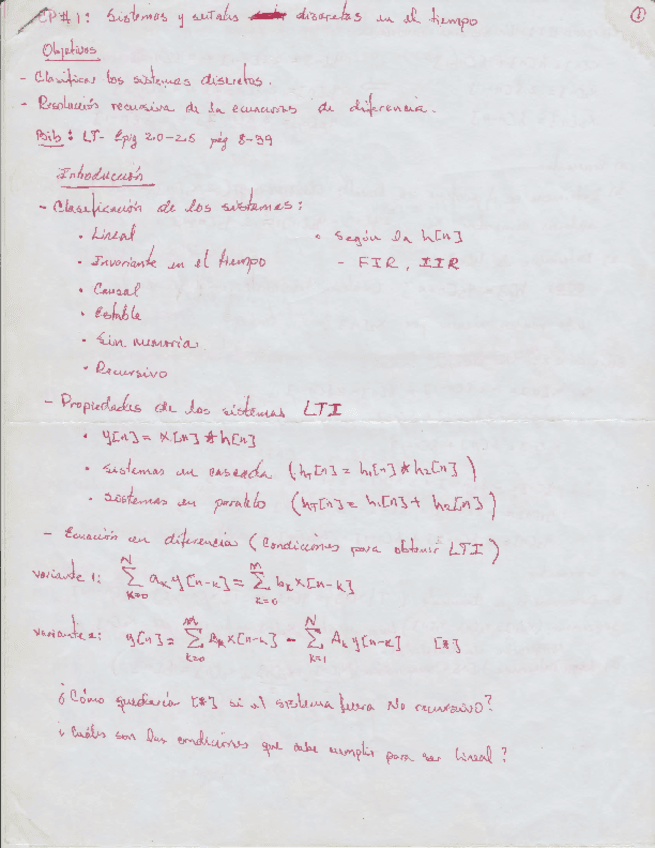 CP#1: Sistemas y señales discretos en el tiempo
1
Objetivos
- Clasificar los sistemas discretos.
- Resolución recursiva de la ecuaciones de diferencia.
Bib: LT- Epíg 2.0-2.5 pág 8-39
Introducción
- Clasificación de los sistemas:
• Lineal
• Según la h[n]
• Invariante en el tiempo
- FIR, IIR
• Causal
• Estable
• Sin memoria
• Recursivo
- Propiedades de los sistemas LTI
• y[n] = x[n] * h[n]
• Sistemas en cascada (hT[n] = h1[n] * h2[n])
• Sistemas en paralelo (hT[n] = h1[n] + h2[n])
- Ecuación en diferencia (Condiciones para obtener LTI)
variante 1: \sum_{k=0}^{N} a_k y[n-k] = \sum_{k=0}^{M} b_k x[n-k]
variante 2: y[n] = \sum_{k=0}^{M} B_k x[n-k] - \sum_{k=1}^{N} A_k y[n-k] [*]
¿Cómo quedaría [*] si el sistema fuera No recursivo?
¿Cuáles son las condiciones que debe cumplir para ser lineal?